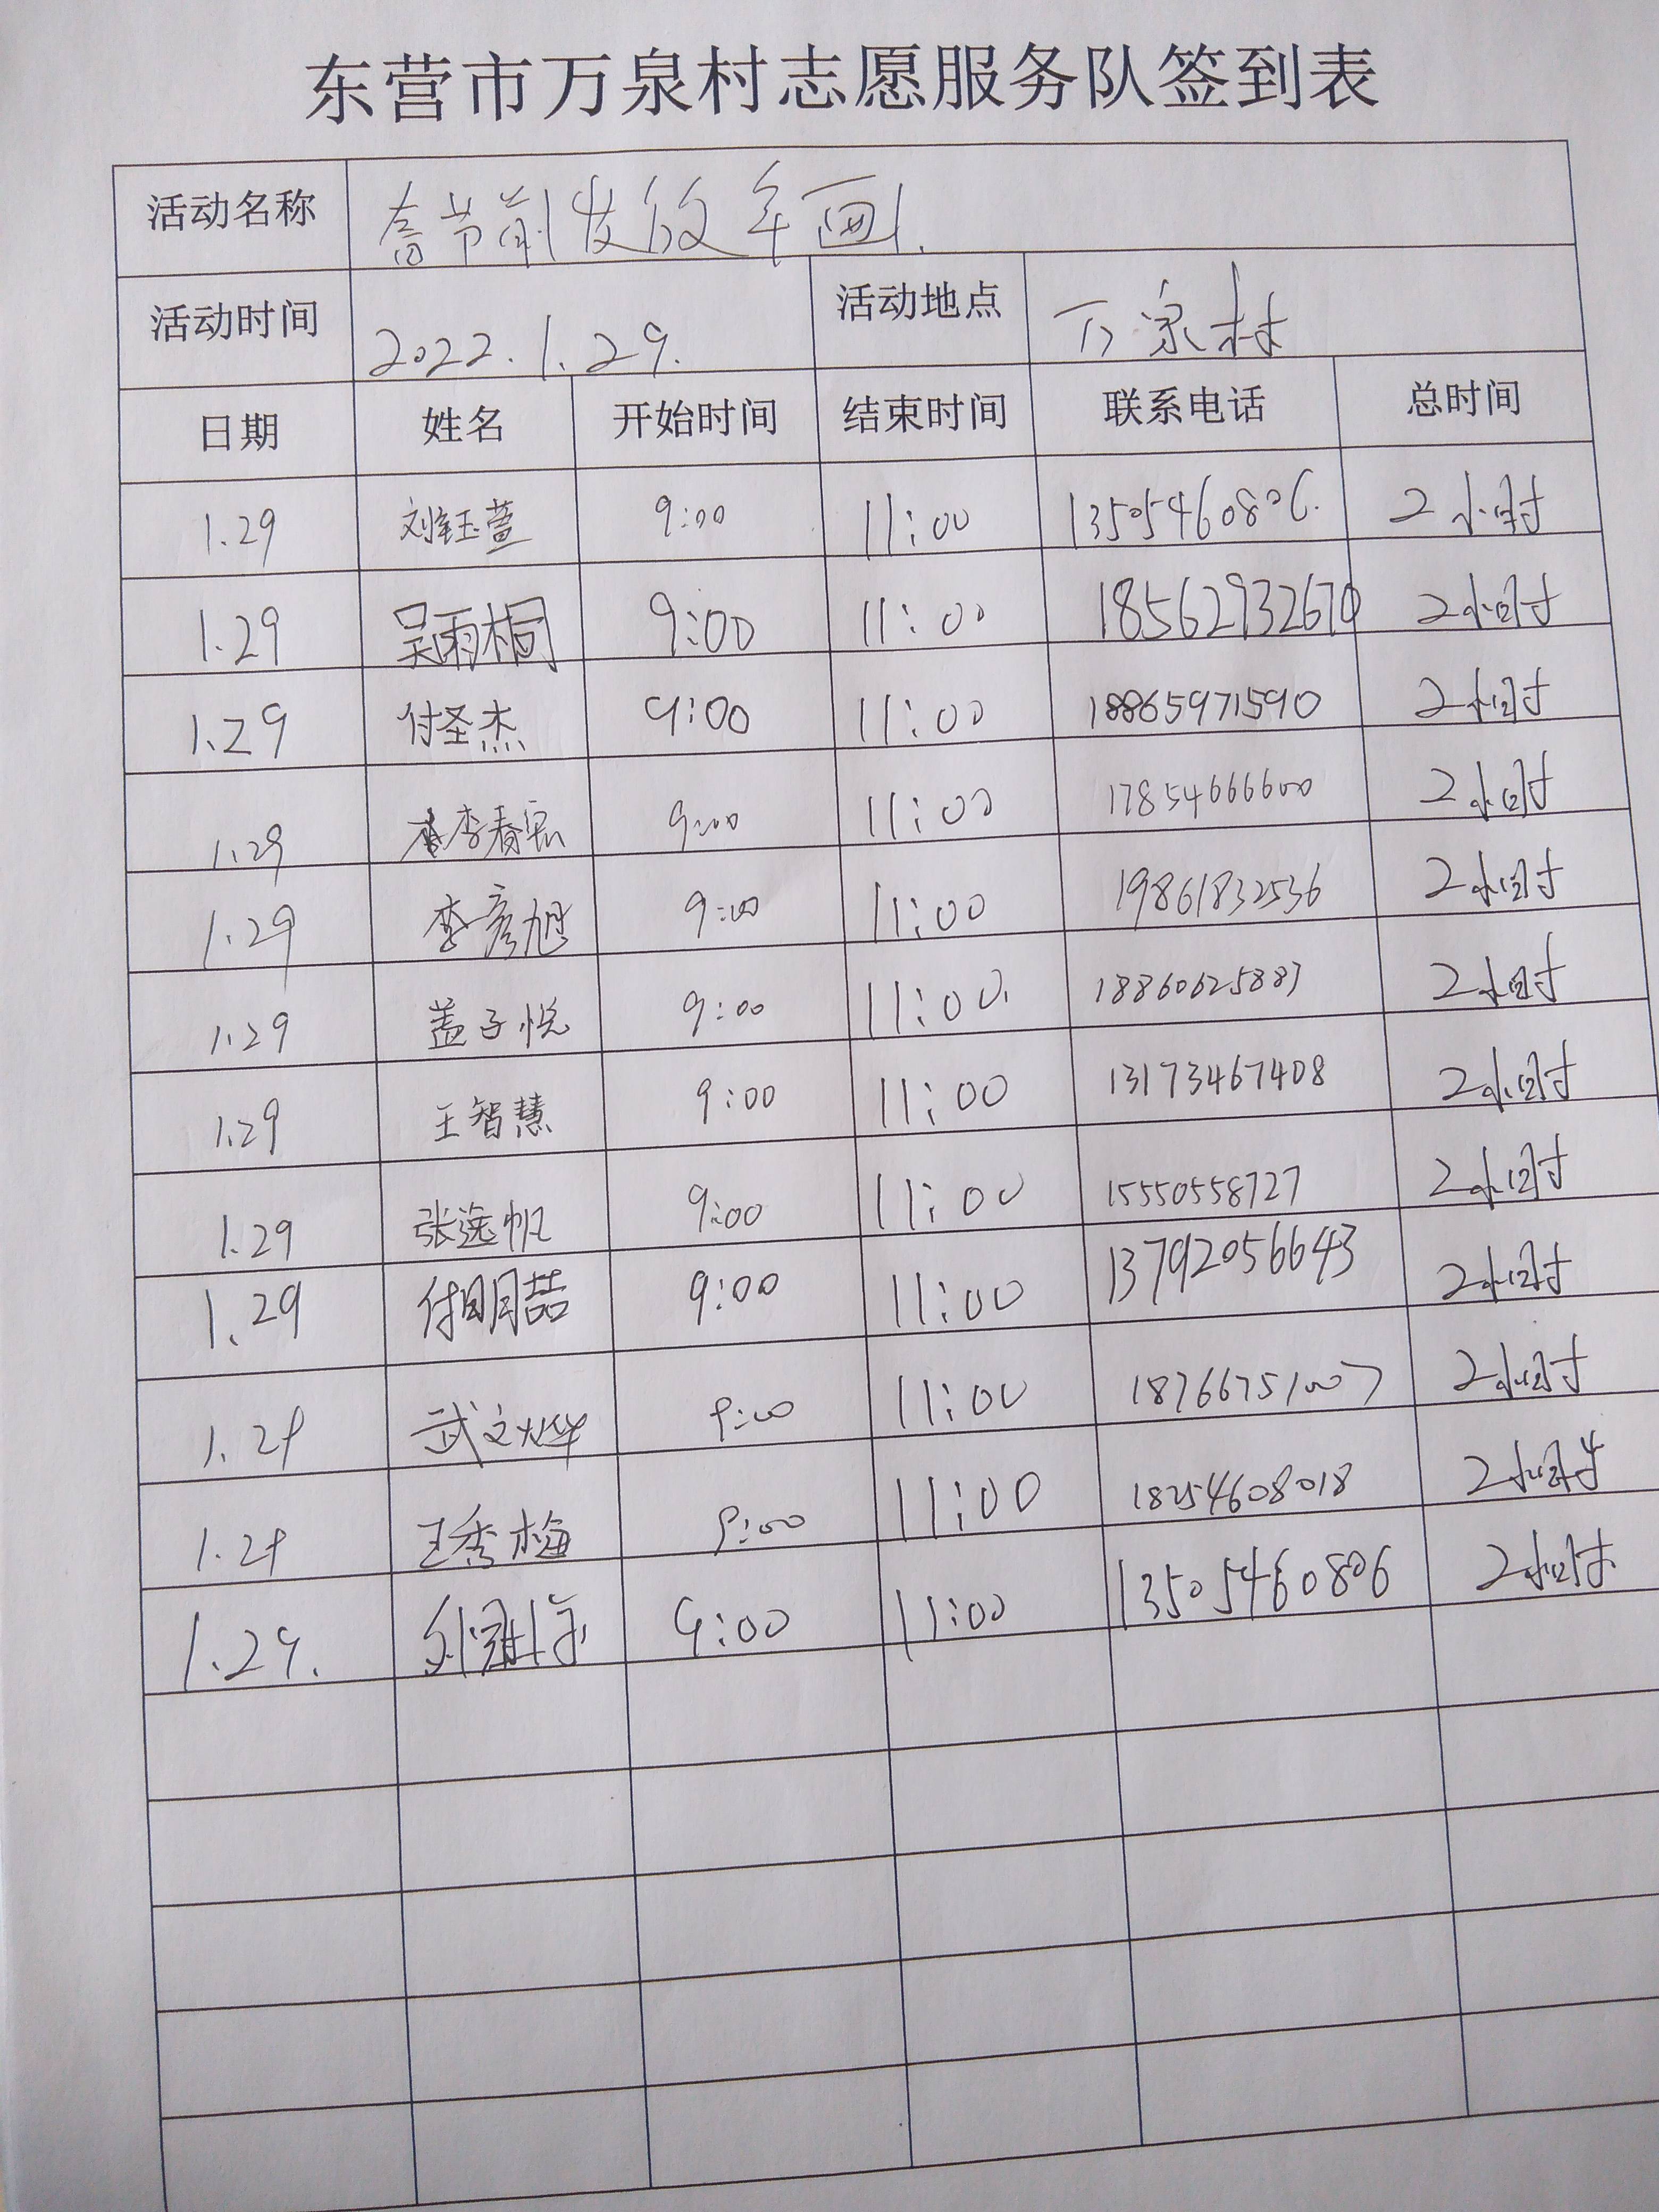 东营市万泉村志愿服务队签到表
活动名称 春节前发放年画.
活动时间 2022.1.29. 活动地点 万泉村
日期 姓名 开始时间 结束时间 联系电话 总时间
1.29 刘钰萱 9:00 11:00 13505460806. 2小时
1.29 吴雨桐 9:00 11:00 18562932670 2小时
1.29 付圣杰 9:00 11:00 18865971590 2小时
1.29 李春 9:00 11:00 17854666600 2小时
1.29 李彦旭 9:00 11:00 19861832536 2小时
1.29 盖子悦 9:00 11:00. 18860625883 2小时
1.29 王智慧 9:00 11:00 13173467408 2小时
1.29 张逸帆 9:00 11:00 15550558727 2小时
1.29 付明喆 9:00 11:00 13792056643 2小时
1.29 武文烨 9:00 11:00 18766751007 2小时
1.29 王秀梅 9:00 11:00 18254608018 2小时
1.29. 9:00 11:00 13505460806 2小时.